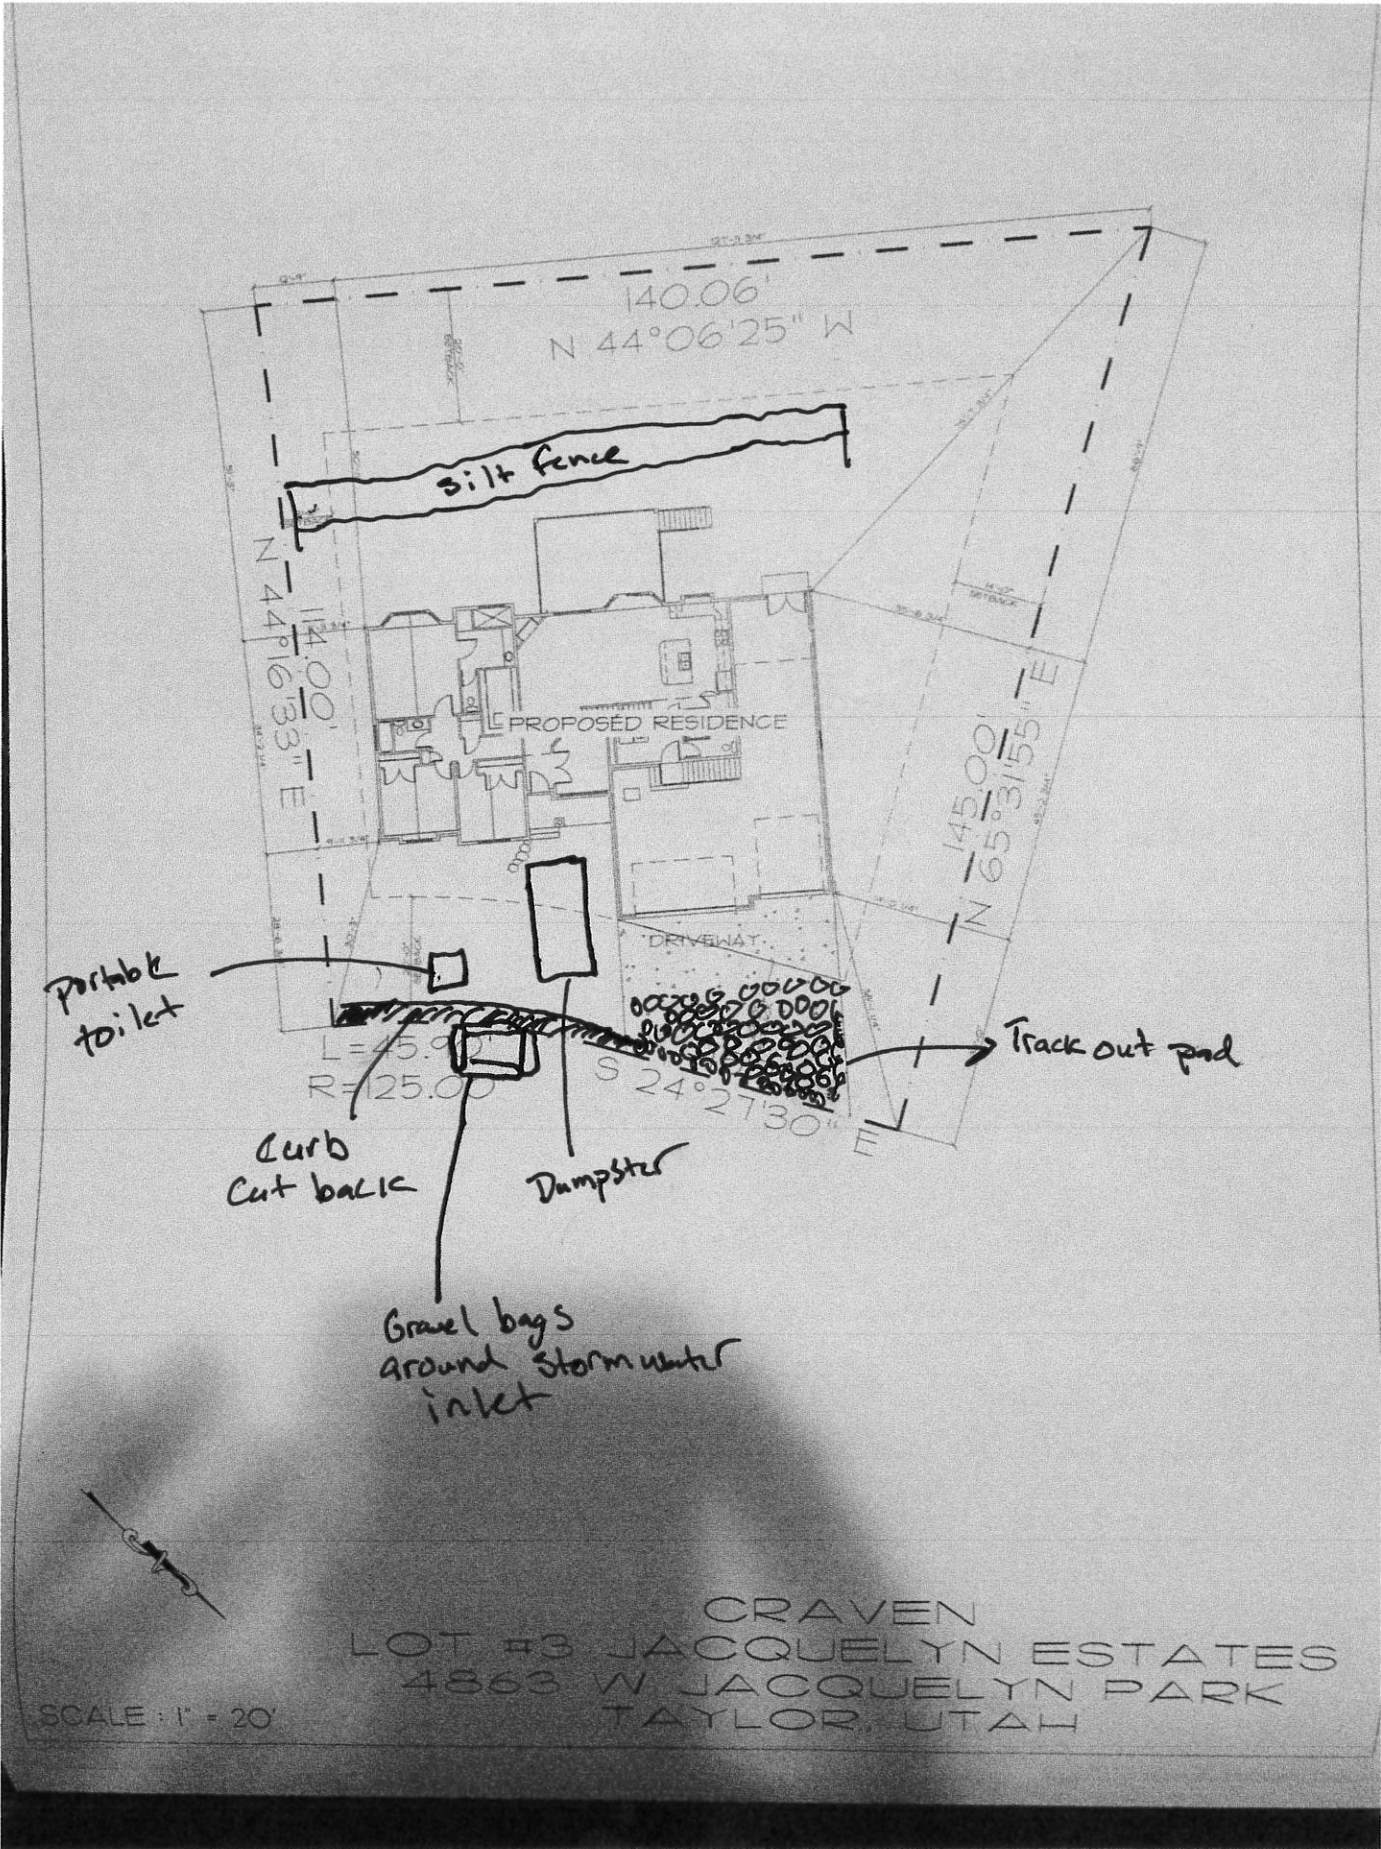 140.06'
N 44°06'25" W
silt fence
N 44°16'33" E
114.00'
PROPOSED RESIDENCE
SETBACK
145.00'
N 65°31'55" E
DRIVEWAY
portable
toilet
L=45.90'
R=125.00'
S 24°27'30" E
Track out pad
Curb
Cut back
Dumpster
Gravel bags
around stormwater
inlet
CRAVEN
LOT #3 JACQUELYN ESTATES
4863 W. JACQUELYN PARK
TAYLOR, UTAH
SCALE : 1" = 20'